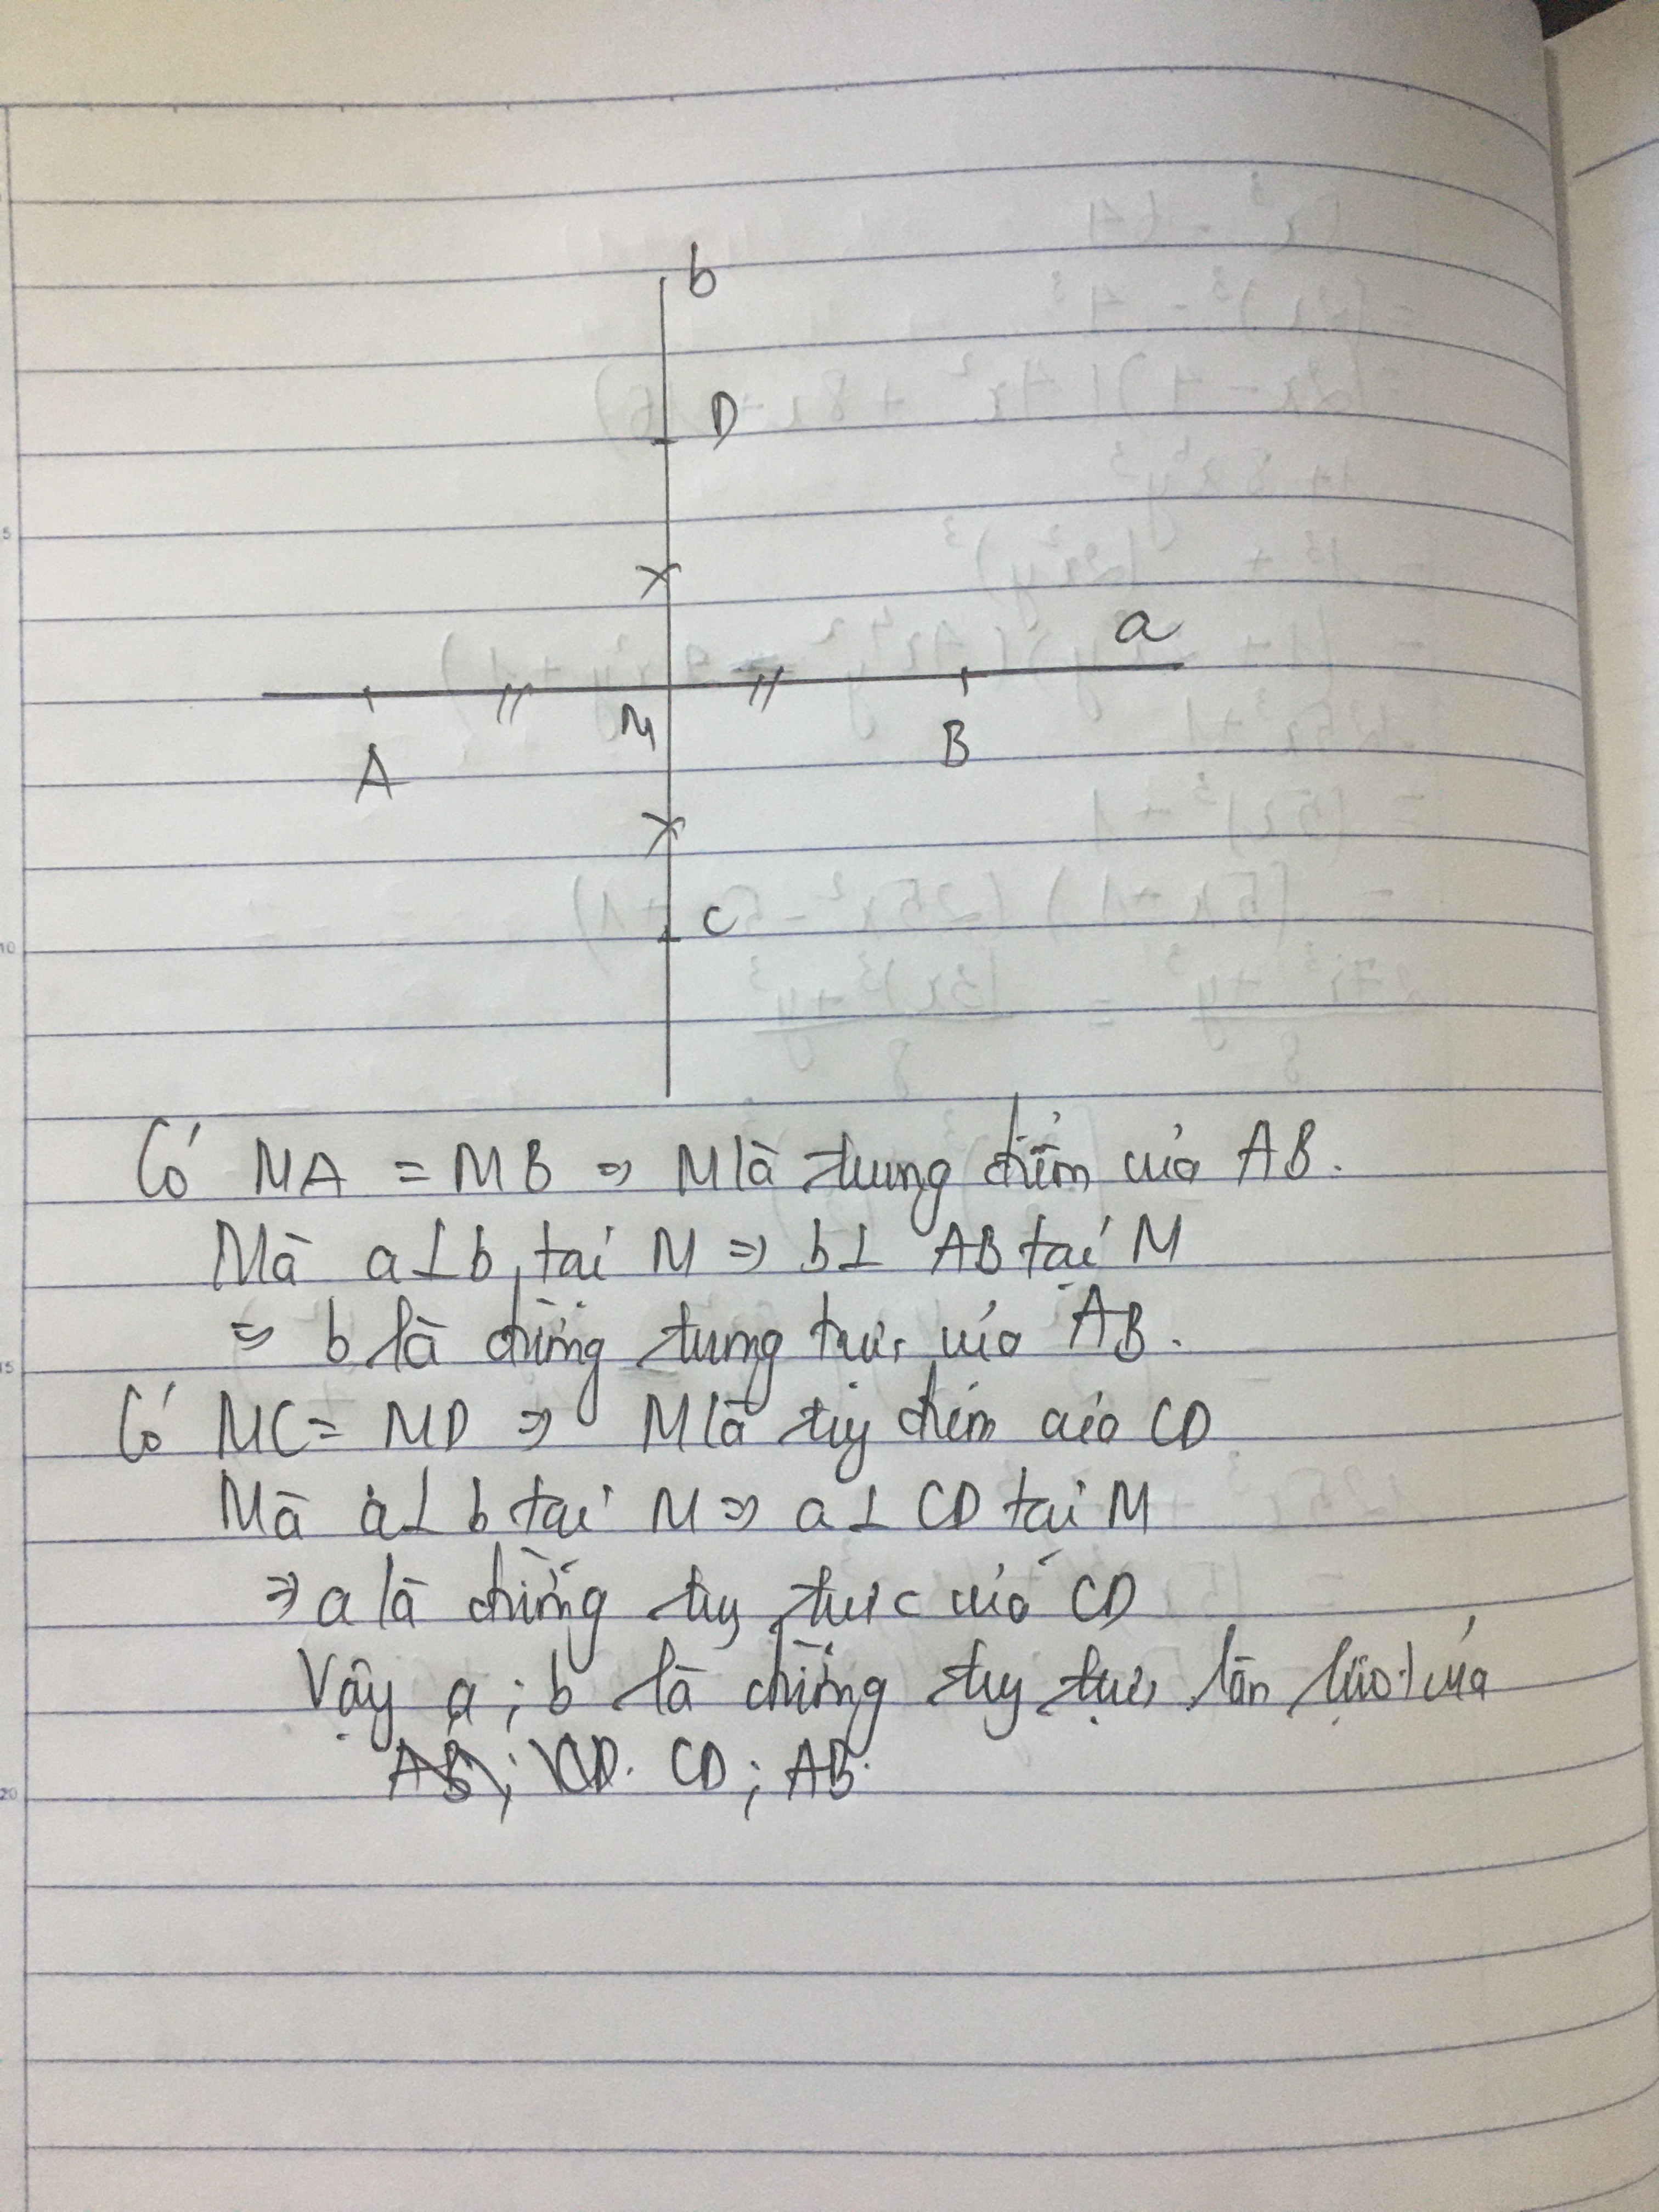 b
D
a
M
A
B
C
5
10
15
20
Có MA = MB => M là trung điểm của AB.
Mà a⊥b tại M => b⊥ AB tại M
=> b là đường trung trực của AB.
Có MC = MD => M là tr/g điểm của CD
Mà a⊥b tại M => a⊥CD tại M
=> a là đường tr/g trực của CD
Vậy a; b là đường tr/g trực lần lượt của
CD; AB.